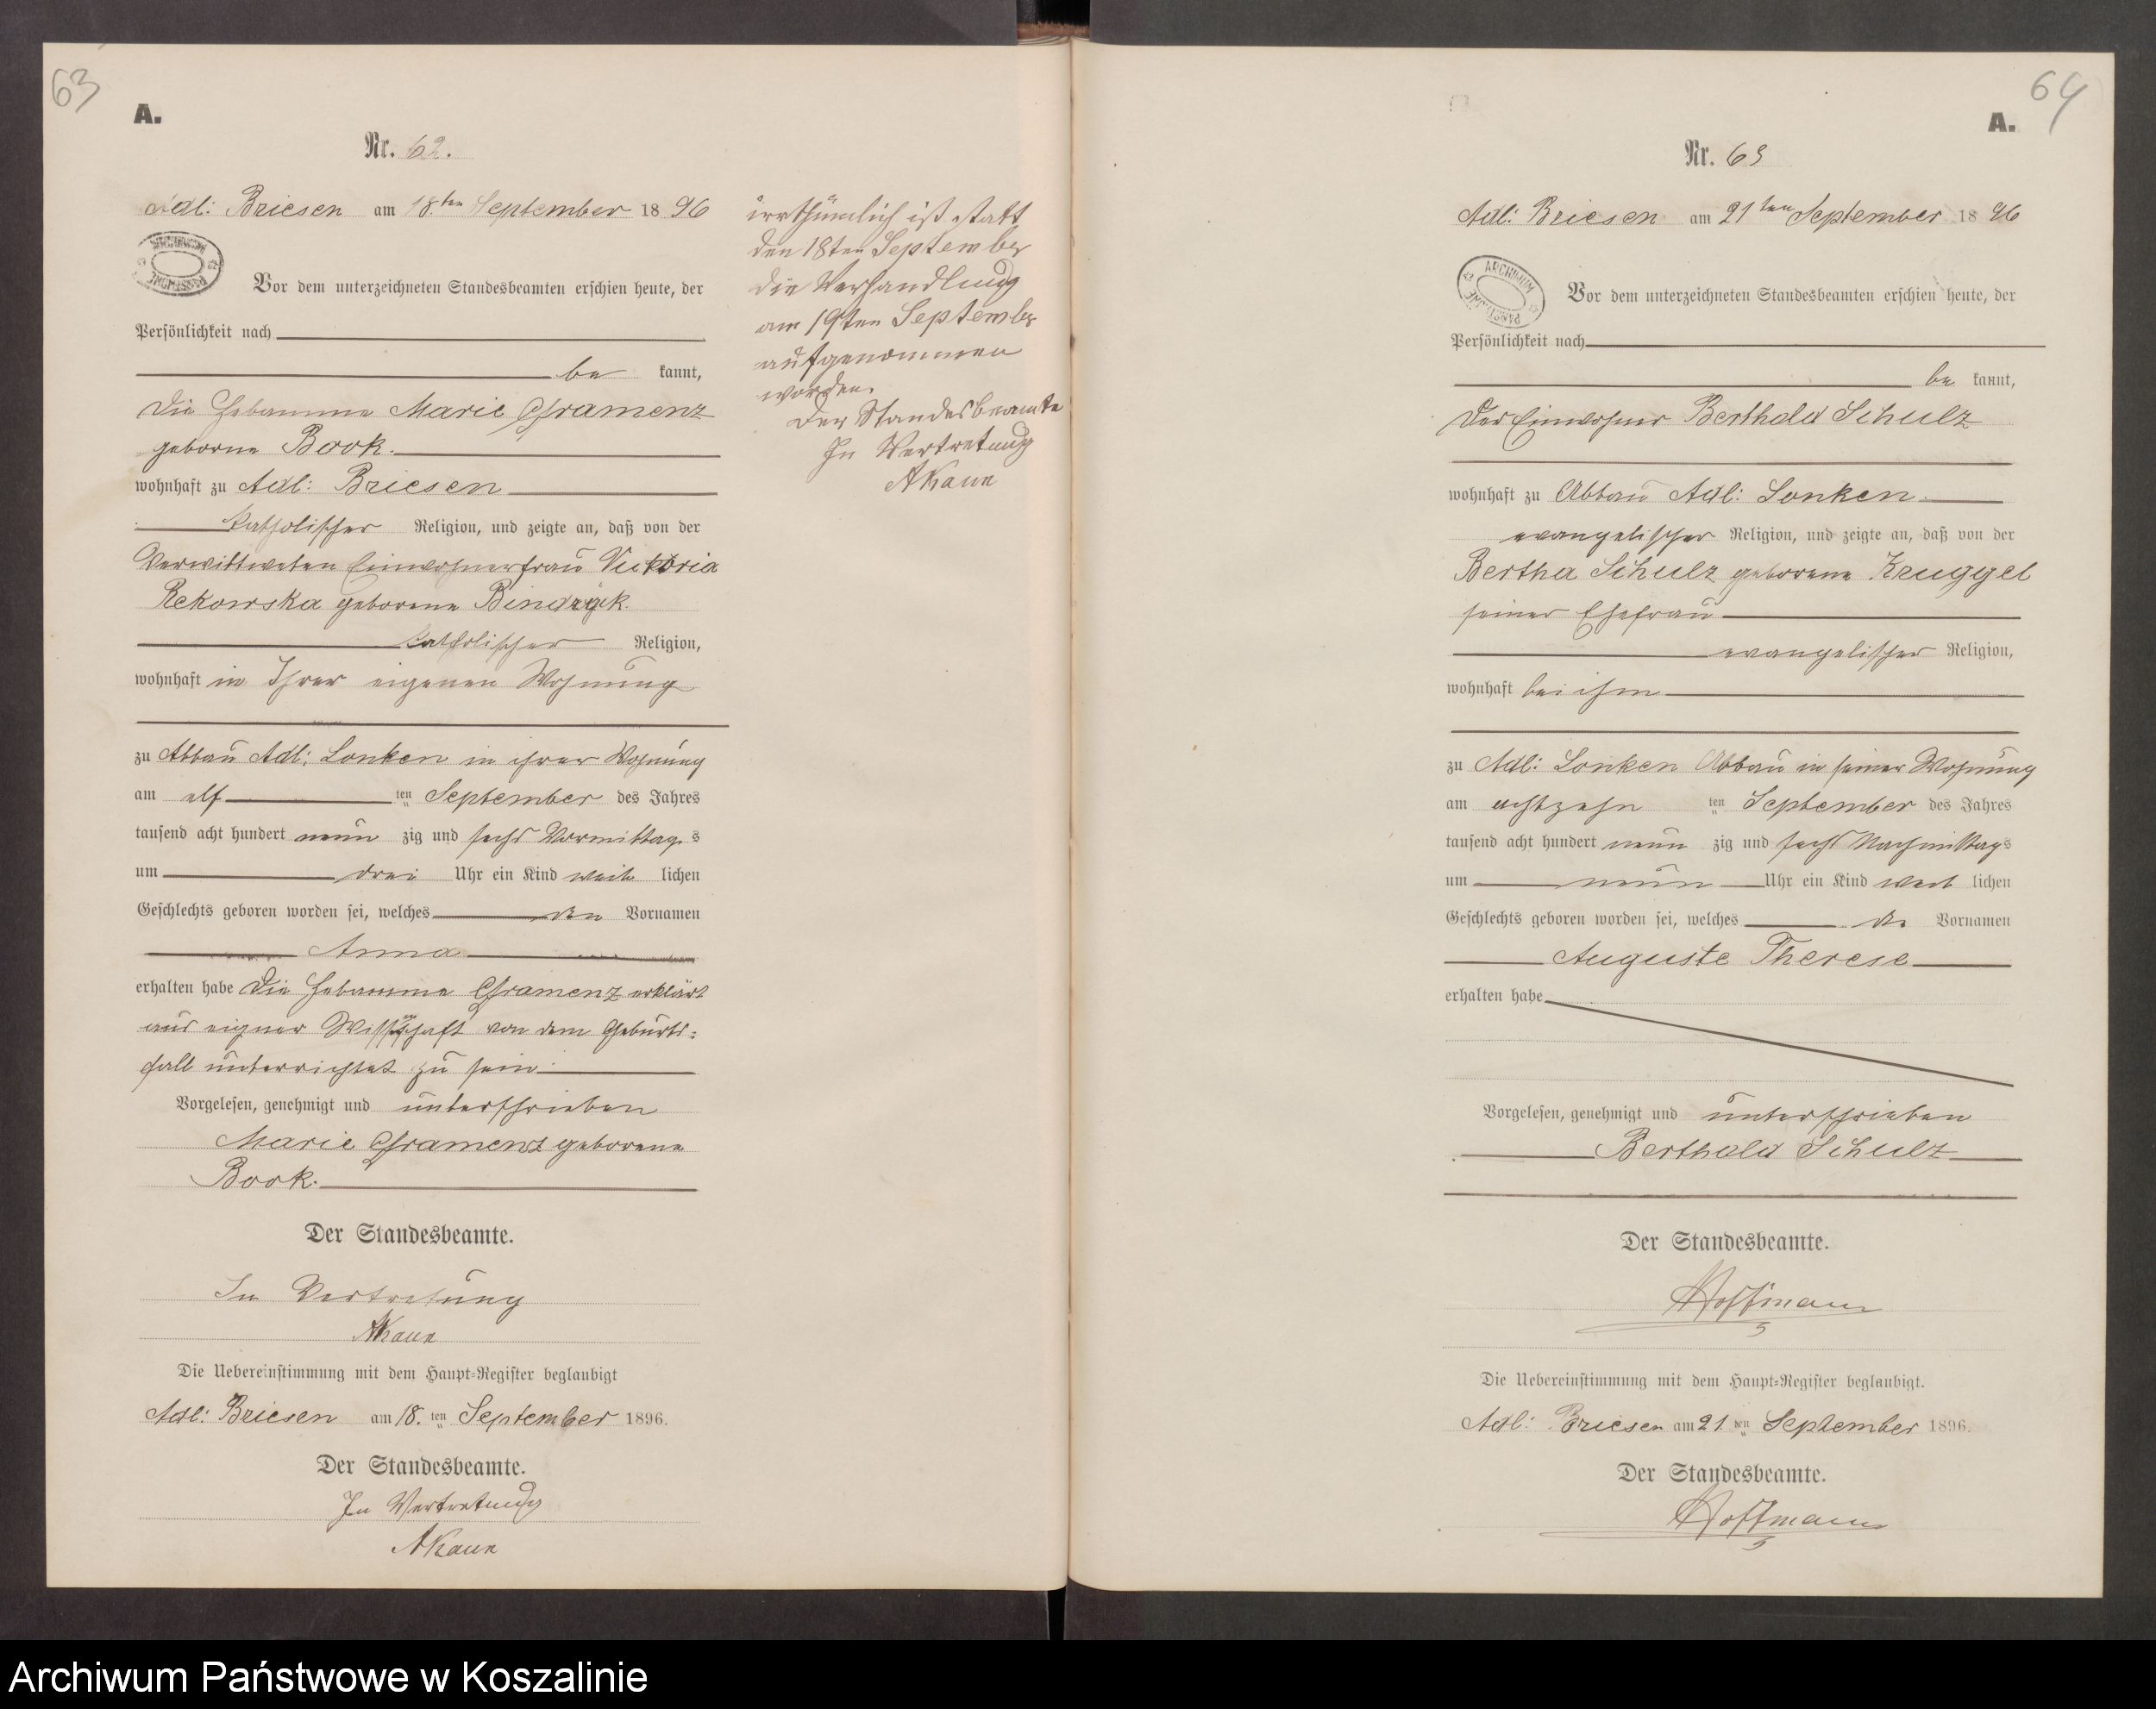 63
A.
Nr. 62.
Adl: Briesen am 18.ten September 1896
Vor dem unterzeichneten Standesbeamten erschien heute, der
Persönlichkeit nach
be kannt,
die Hebamme Marie Gramenz
geborne Book.
wohnhaft zu Adl: Briesen
katholischer Religion, und zeigte an, daß von der
Verwittweten Einwohnerfrau Viktoria
Rekowska geborene
katholischer Religion,
wohnhaft in Ihrer eigenen Wohnung
zu Abbau Adl: Lonken in ihrer Wohnung
am elf ten September des Jahres
tausend acht hundert neun zig und sechs Vormittags
um drei Uhr ein Kind weib lichen
Geschlechts geboren worden sei, welches den Vornamen
Anna
erhalten habe Die Hebamme Gramenz erklärt
aus eigner Wissenschaft von dem Geburts=
fall unterrichtet zu sein.
Vorgelesen, genehmigt und unterschrieben
Marie Gramenz geborene
Book.
Der Standesbeamte.
In Vertretung
AKaun
Die Uebereinstimmung mit dem Haupt=Register beglaubigt
Adl: Briesen am 18. ten September 1896.
Der Standesbeamte.
In Vertretung
AKaun
irrthümlich ist statt
den 18ten September
die Verhandlung
am 19ten September
aufgenommen
worden.
Der Standesbeamte
In Vertretung
AKaun
64
A.
Nr. 63
Adl: Briesen am 21ten September 1896
ARCHIWUM
Vor dem unterzeichneten Standesbeamten erschien heute, der
Persönlichkeit nach
be kannt,
Der Einwohner Berthold Schulz
wohnhaft zu Abbau Adl: Lonken.
evangelischer Religion, und zeigte an, daß von der
Bertha Schulz geborene Kruggel
seiner Ehefrau
evangelischer Religion,
wohnhaft bei ihm
zu Adl: Lonken Abbau in seiner Wohnung
am achtzehn ten September des Jahres
tausend acht hundert neun zig und sechs Nachmittags
um neun Uhr ein Kind weib lichen
Geschlechts geboren worden sei, welches die Vornamen
Auguste Therese
erhalten habe
Vorgelesen, genehmigt und unterschrieben
Berthold Schulz
Der Standesbeamte.
Hoffmann
Die Uebereinstimmung mit dem Haupt=Register beglaubigt.
Adl: Briesen am 21 ten September 1896.
Der Standesbeamte.
Hoffmann
Archiwum Państwowe w Koszalinie